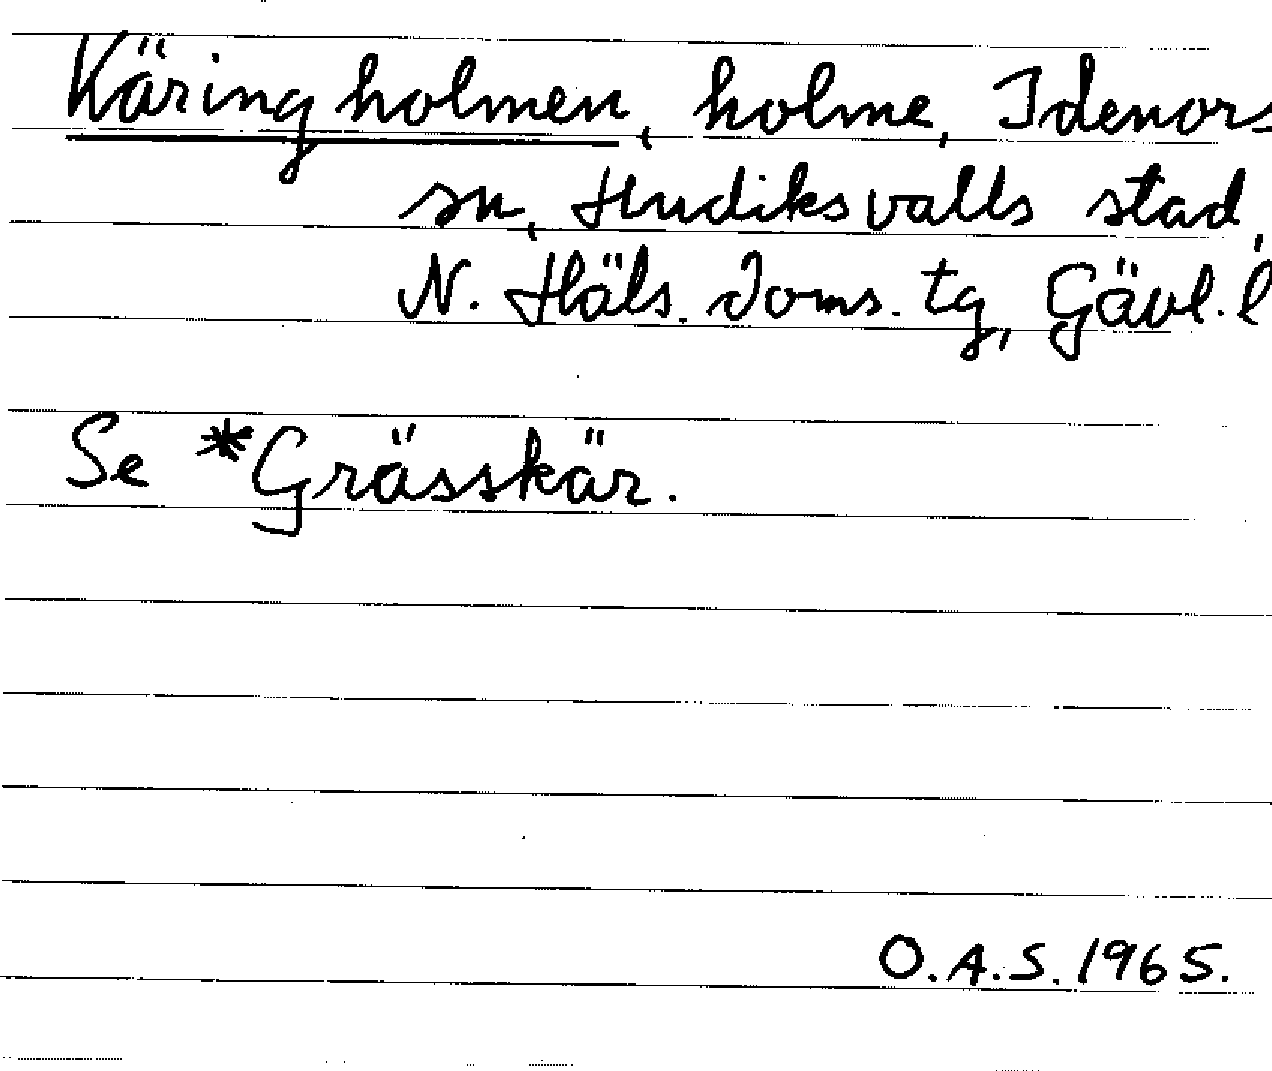 Käringholmen, holme, Idenors
sn, Hudiksvalls stad,
N. Häls. doms. tg, Gävl. l
Se *Grässkär.
O.A.S. 1965.